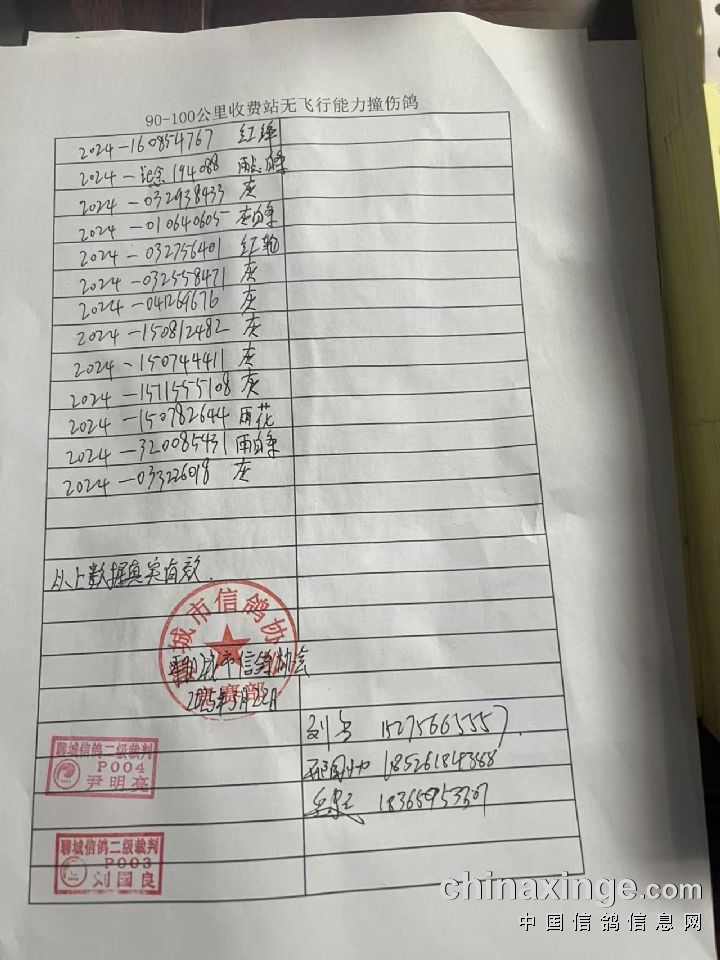 90-100公里收费站无飞行能力撞伤鸽
2024-160854767 红绛
2024-纪念194088 雨白条
2024-032938433 灰
2024-010640605 灰白条
2024-032756401 红轮
2024-032558471 灰
2024-041269676 灰
2024-150812482 灰
2024-150744411 灰
2024-1571555108 灰
2024-150782644 雨花
2024-320085431 雨白条
2024-033226018 灰
以上数据真实有效.
城市信鸽协
聊城市信鸽协会
竞赛部
2025年3月22日
15275665557.
18526184888
18365953307
聊城信鸽二级裁判
P004
尹明亮
聊城信鸽二级裁判
P003
刘国良
chinaxinge.com
中国信鸽信息网